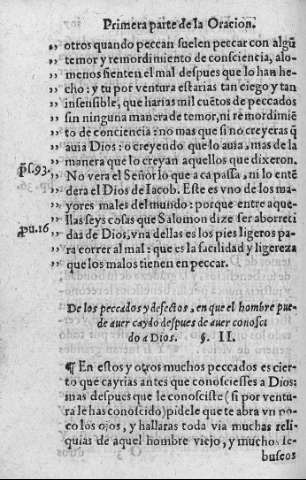 Primera parte de la Oracion.
,, otros quando peccan suelen peccar con algũ
,, temor y remordimiento de consciencia, alo-
,, menos sienten el mal despues que lo han he-
,, cho: y tu por ventura estarias tan ciego y tan
,, insensible, que harias mil cuẽtos de peccados
,, sin ninguna manera de temor, ni remordimiẽ
,, to de conciencia: no mas que si no creyeras q̃
,, auia Dios: o creyendo que lo auia, mas de la
,, manera que lo creyan aquellos que dixeron.
ps. 93. ,, No vera el Señor lo que aca passa, ni lo entẽ
,, dera el Dios de Iacob. Este es vno de los ma
,, yores males del mundo: porque entre aque-
,, llas seys cosas que Salomon dize ser aborreci
pu. 16 ,, das de Dios, vna dellas es los pies ligeros pa
,, ra correr al mal: que es la facilidad y ligereza
,, que los malos tienen en peccar.
De los peccados y defectos, en que el hombre pue-
de auer caydo despues de auer conosci
do a Dios. §. II.
¶ En estos y otros muchos peccados es cier
to que cayrias antes que conosciesses a Dios:
mas despues que le conosciste (si por ventu-
ra le has conoscido) pidele que te abra vn po
co los ojos, y hallaras toda via muchas reli-
quias de aquel hombre viejo, y muchos Ie-
buseos